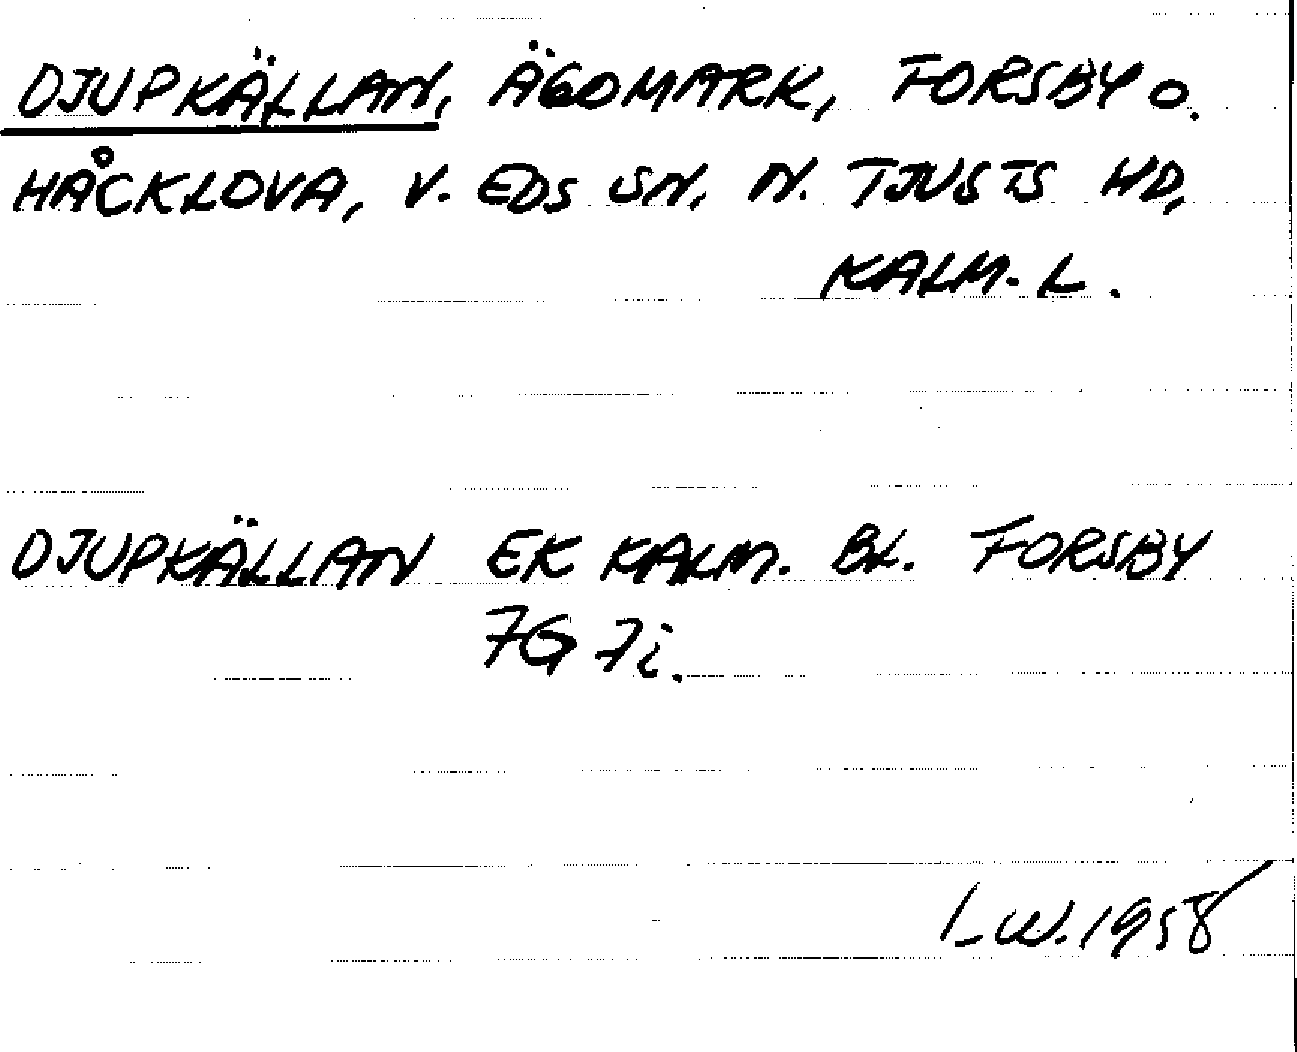 DJUPKÄLLAN, ÄGOMARK, FORSBY O.
HÅCKLOVA, V. EDS SN, N. TJUSTS HD,
KALM. L.
DJUPKÄLLAN EK KALM. BL. FORSBY
7G 7i.
L.W. 1958